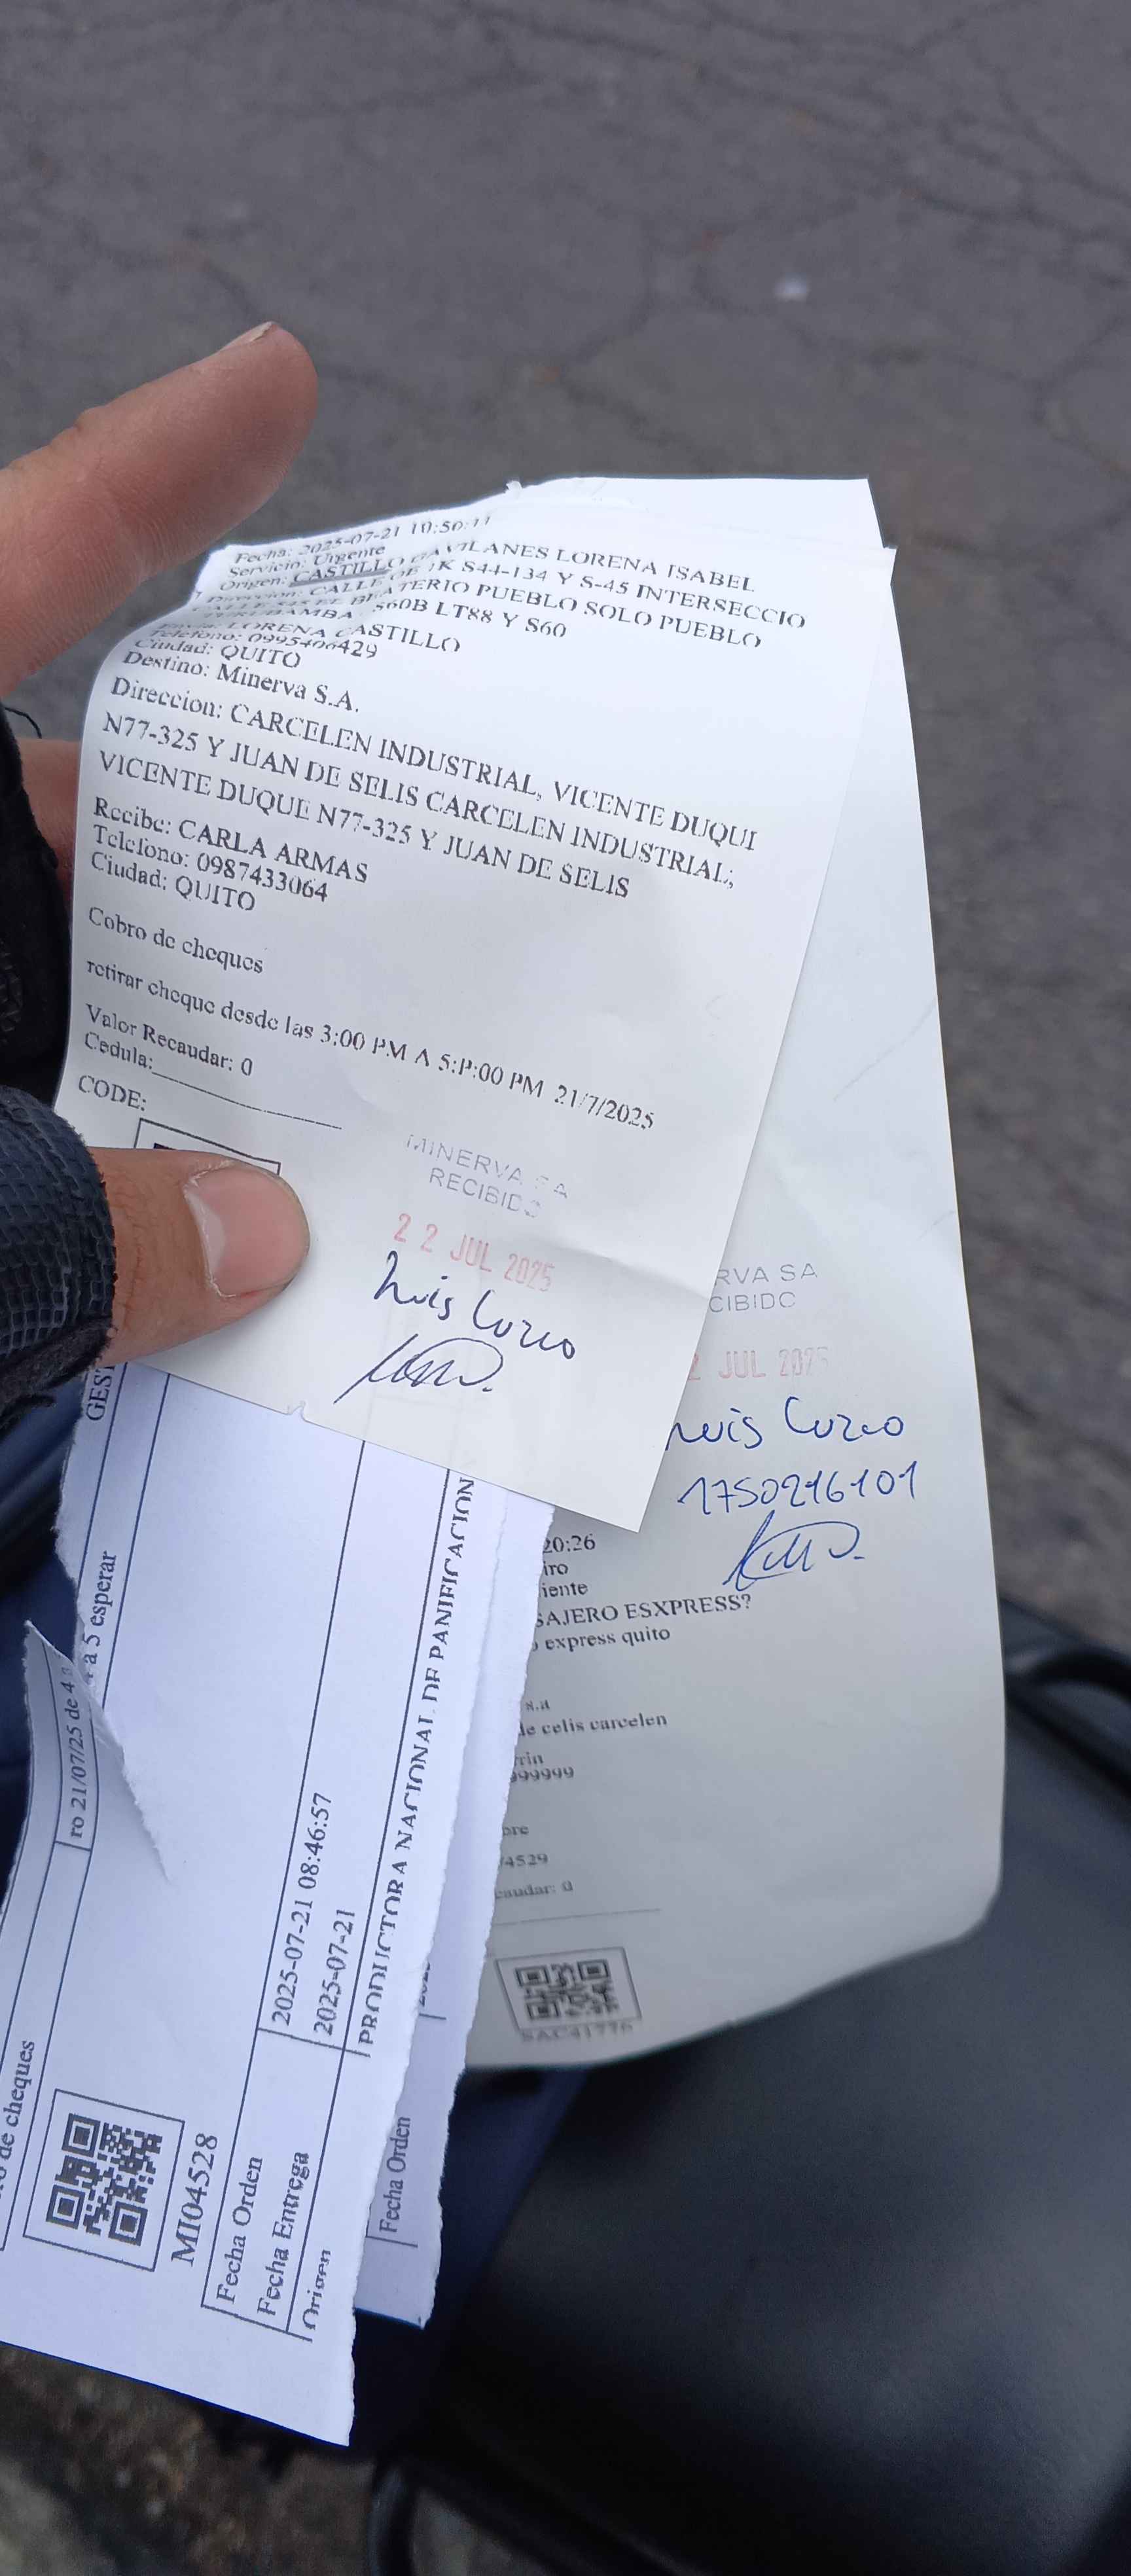 Fecha: 2025-07-21 10:50:11
Servicio: Urgente
Origen: CASTILLO GAVILANES LORENA ISABEL
Direccion: CALLE S44-134 Y S-45 INTERSECCIO
PUEBLO SOLO PUEBLO
S60B LT88 Y S60
LORENA CASTILLO
Telefono: 0995406429
Ciudad: QUITO
Destino: Minerva S.A.
Direccion: CARCELEN INDUSTRIAL, VICENTE DUQUI
N77-325 Y JUAN DE SELIS CARCELEN INDUSTRIAL;
VICENTE DUQUE N77-325 Y JUAN DE SELIS
Recibe: CARLA ARMAS
Telefono: 0987433064
Ciudad: QUITO
Cobro de cheques
retirar cheque desde las 3:00 PM A 5:P:00 PM 21/7/2025
Valor Recaudar: 0
Cedula:
CODE:
MINERVA SA
RECIBIDO
22 JUL 2025
Luis
RVA SA
CIBIDO
2 JUL 2025
Luis
1750216101
20:26
iro
iente
SAJERO ESXPRESS?
express quito
s.a
de celis carcelen
rin
999999
bre
4529
caudar: 0
SAC41776
GEST
a 5 esperar
ro 21/07/25 de 4
de cheques
MI04528
Fecha Orden
2025-07-21 08:46:57
Fecha Entrega
2025-07-21
Origen
PRODUCTORA NACIONAL DE PANIFICACION
Fecha Orden